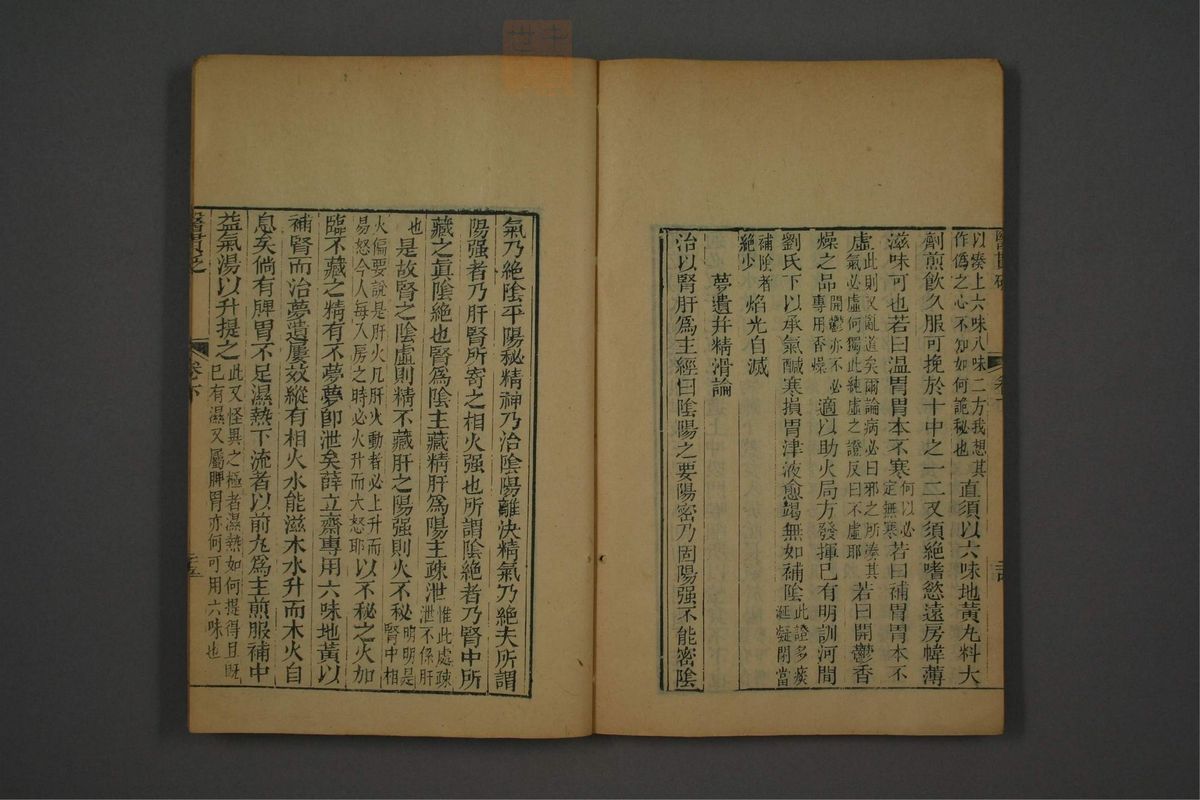 以湊上六味八味二方我想其作僞之心不知如何詭秘也直須以六味地黃丸料大
劑煎飲久服可挽於十中之一二又須絕嗜慾遠房幃薄
滋味可也若曰温胃胃本不寒何以必定無寒若曰補胃胃本不
虛此則又亂道矣爾論病必曰邪之所湊其氣必虛何獨此純虛之證反曰不虛耶若曰開鬱香
燥之品開鬱亦不必專用香燥適以助火局方發揮已有明訓河間
劉氏下以承氣鹹寒損胃津液愈竭無如補陰此證多痰涎凝閉當
補陰者絕少焰光自滅
夢遺并精滑論
治以腎肝爲主經曰陰陽之要陽密乃固陽强不能密陰
氣乃絕陰平陽秘精神乃治陰陽離決精氣乃絕夫所謂
陽强者乃肝腎所寄之相火强也所謂陰絕者乃腎中所
藏之眞陰絕也腎爲陰主藏精肝爲陽主疎泄惟此處疎泄不係肝
也是故腎之陰虛則精不藏肝之陽强則火不秘明明是腎中相
火偏要說是肝火凡肝火動者必上升而易怒今人每入房之時必火升而大怒耶以不秘之火加
臨不藏之精有不夢夢卽泄矣薛立齋專用六味地黃以
補腎而治夢遺屢效縱有相火水能滋木水升而木火自
息矣倘有脾胃不足濕熱下流者以前丸爲主煎服補中
益氣湯以升提之此又怪異之極者濕熱如何提得且旣已有濕又屬脾胃亦何可用六味也
醫貫砭
卷下